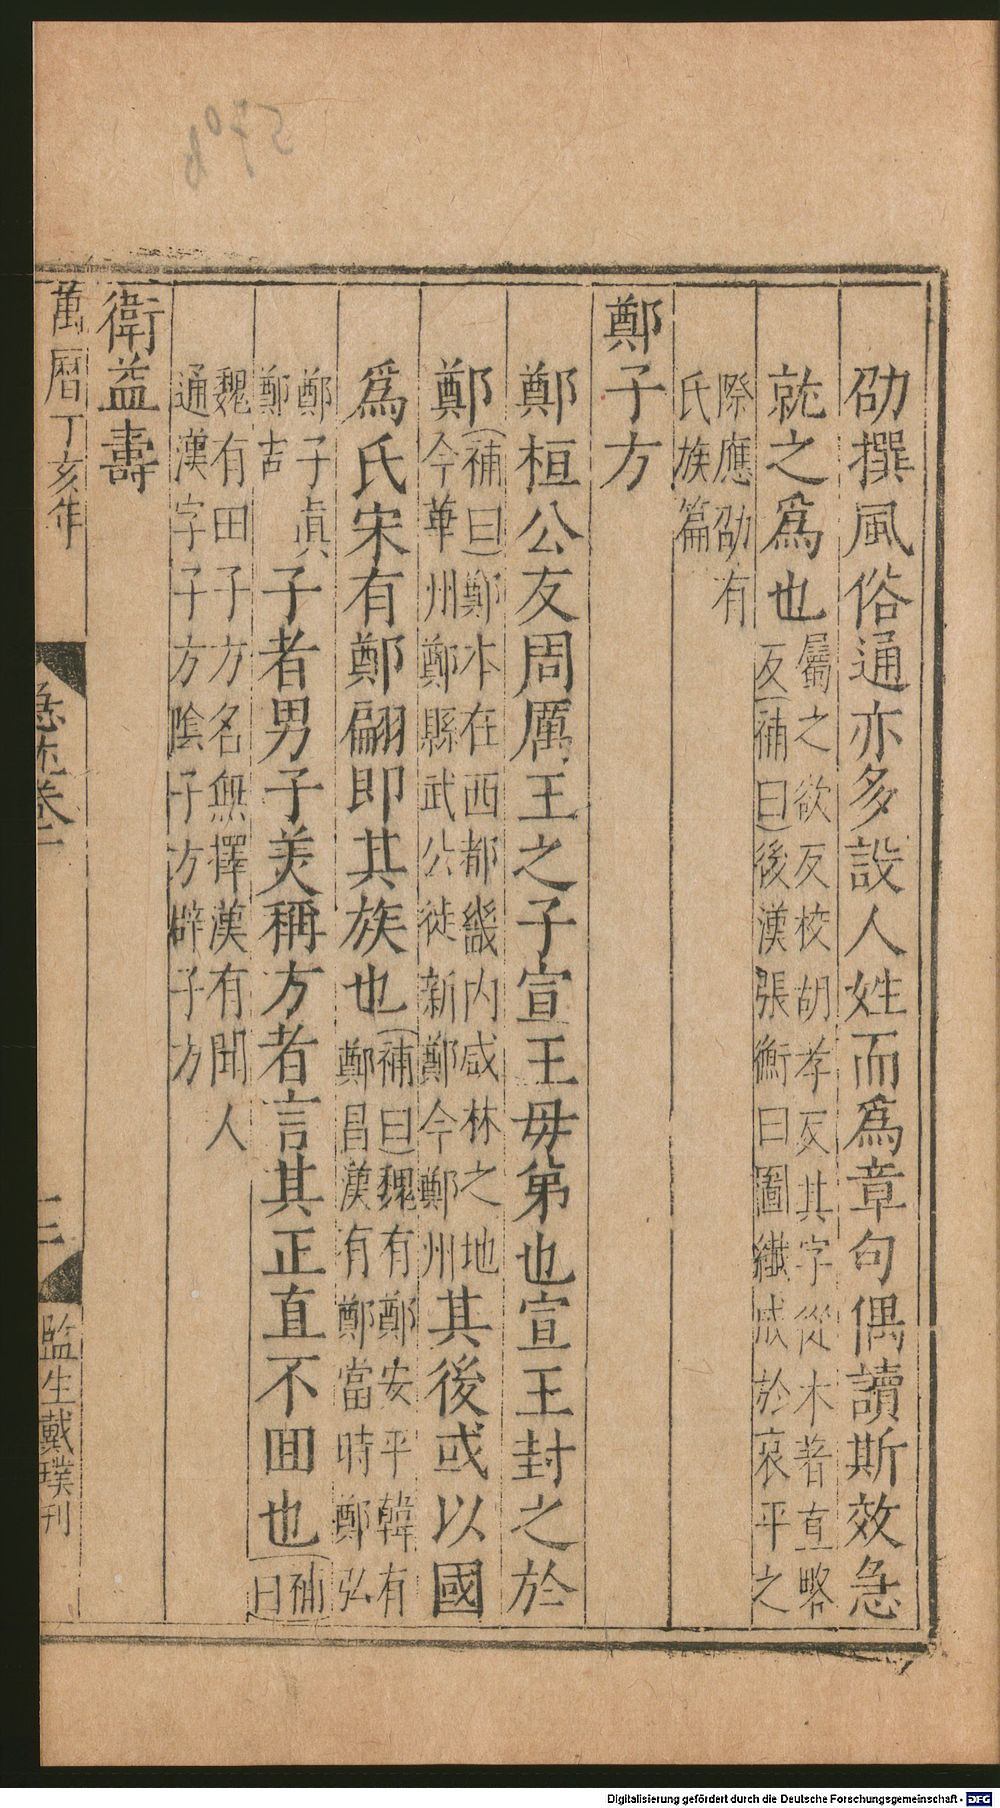 劭撰風俗通亦多設人姓而爲章句偶讀斯效急
就之爲也屬之欲反校胡孝反其字從木者直略
反(補曰)後漢張衡曰圖纎成於哀平之
際應劭有
氏族篇
鄭子方
鄭桓公友周厲王之子宣王毋第也宣王封之於
鄭(補曰)鄭本在西都畿内咸林之地
今華州鄭縣武公徙新鄭今鄭州其後或以國
爲氏宋有鄭翩即其族也(補曰)魏有鄭安平韓有
鄭昌漢有鄭當時鄭弘
鄭子眞
鄭吉子者男子美稱方者言其正直不回也(補曰)
魏有田子方名無擇漢有聞人
通漢字子方陰子方辟子方
衛益壽
萬曆丁亥年
急就卷一
監生戴璞刊
Digitalisierung gefördert durch die Deutsche Forschungsgemeinschaft - DFG